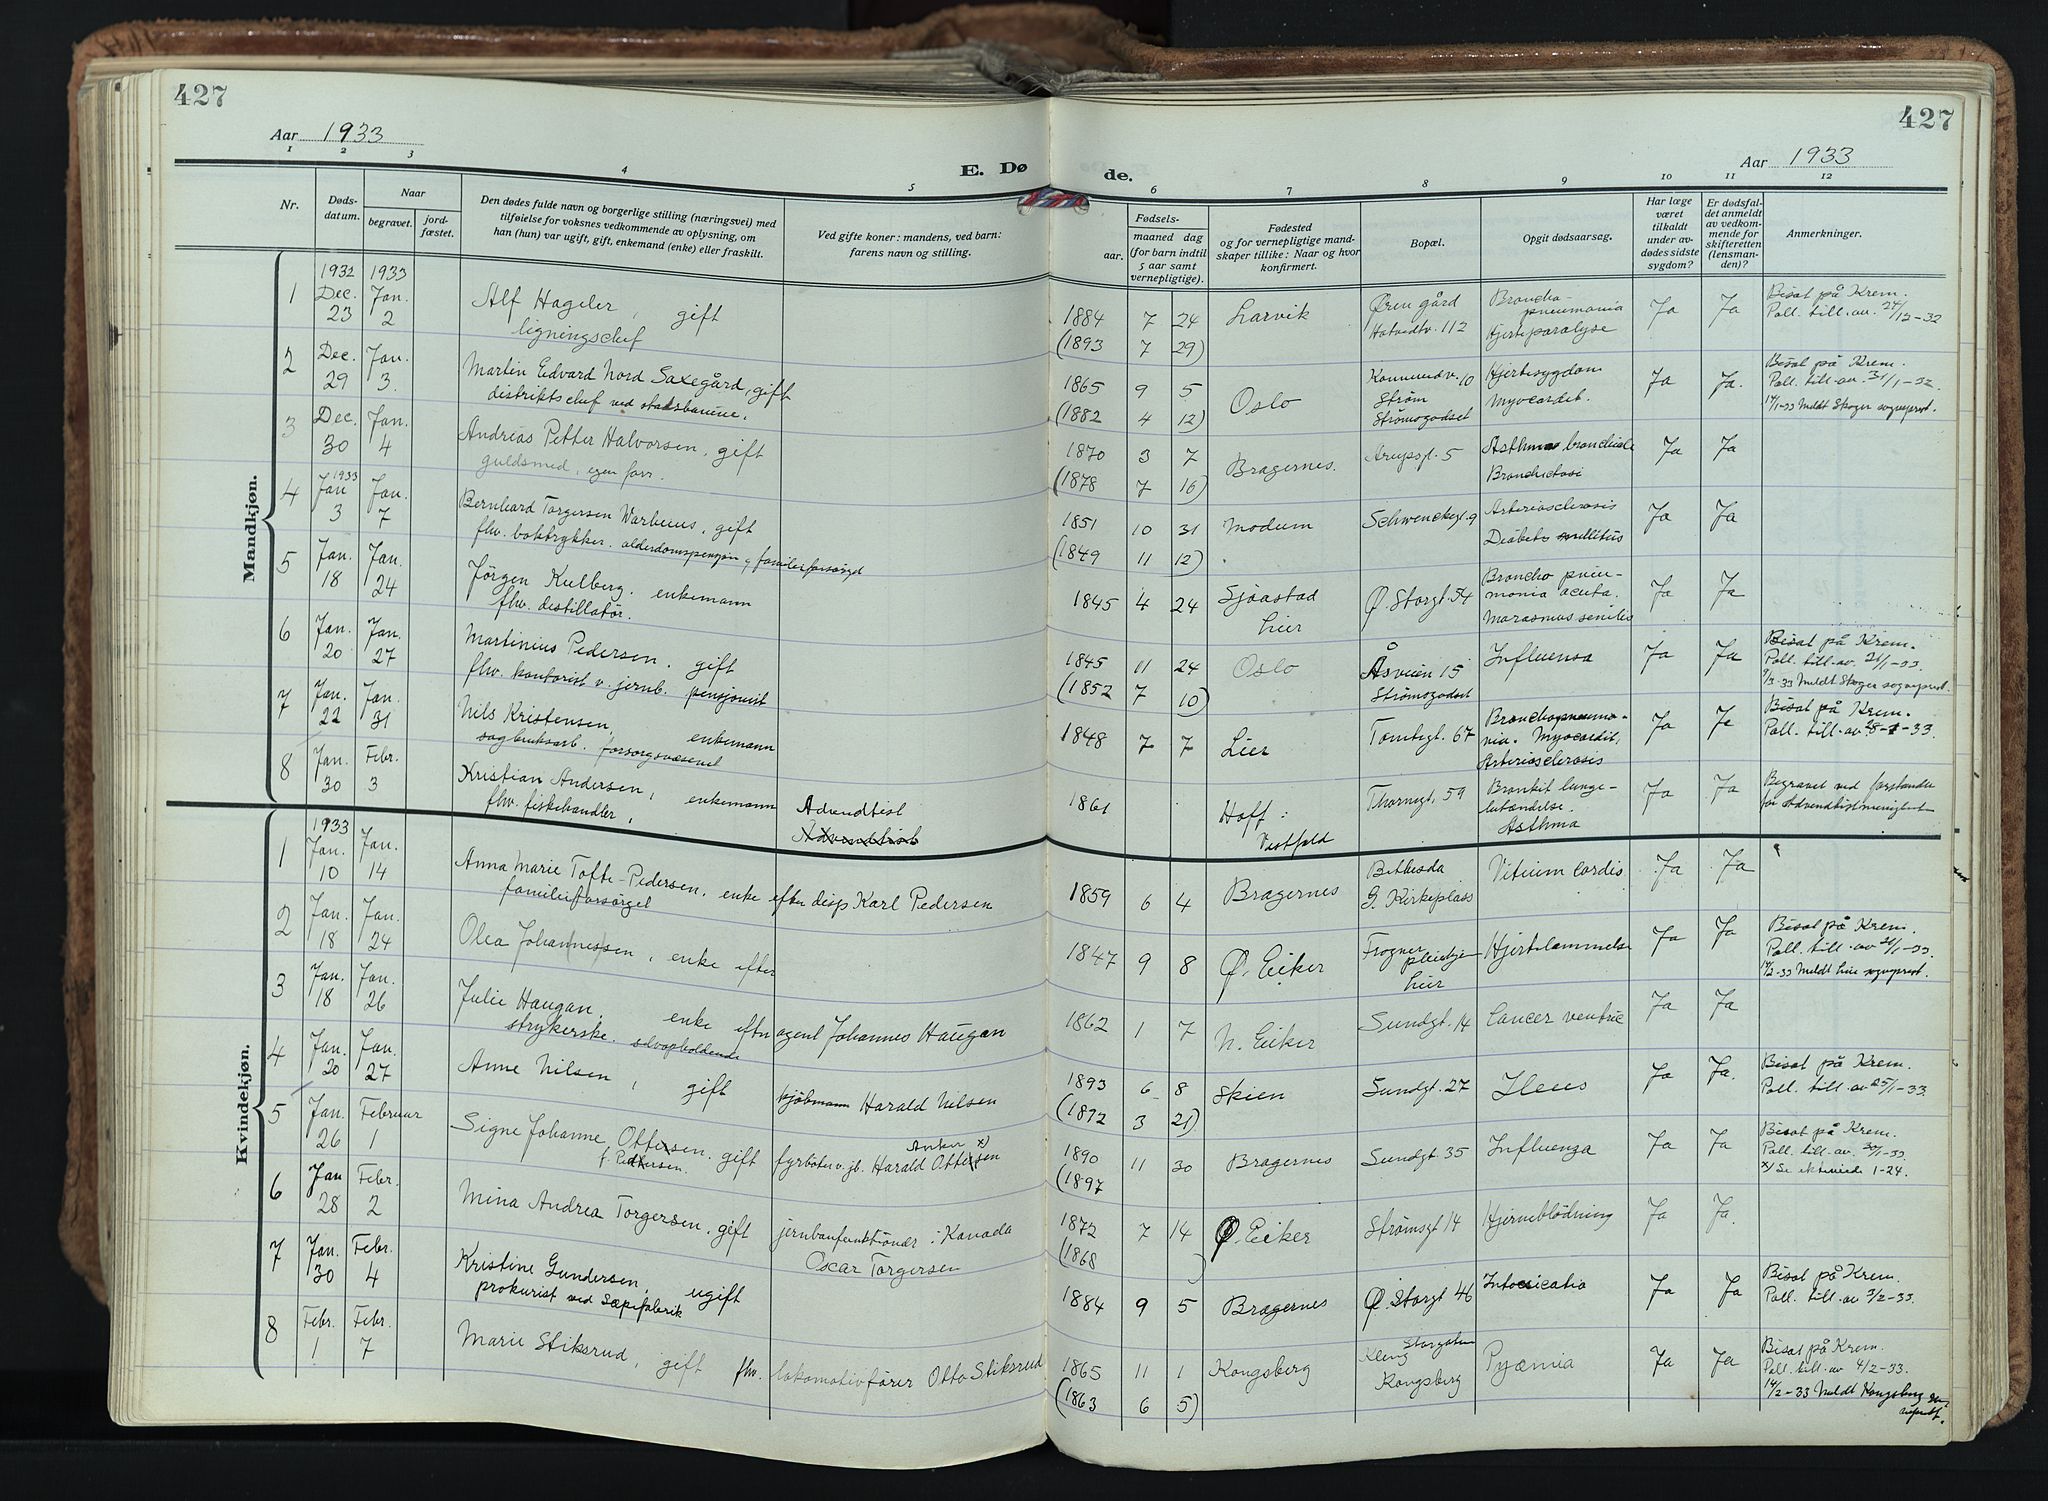 427
427
Aar 1933
Aar 1933
E. Dø
de.
1 2 3 4 5 6 7 8 9 10 11 12
Nr.
Døds-
datum.
Naar
begravet.
jord-
fæstet.
Den dødes fulde navn og borgerlige stilling (næringsvei) med
tilføielse for voksnes vedkommende av oplysning, om
han (hun) var ugift, gift, enkemand (enke) eller fraskilt.
Ved gifte koner: mandens, ved barn:
farens navn og stilling.
Fødsels-
aar.
maaned dag
(for barn indtil
5 aar samt
vernepligtige).
Fødested
og for vernepligtige mand-
skaper tillike: Naar og hvor
konfirmert.
Bopæl.
Opgit dødsaarsag.
Har læge
været
tilkaldt
under av-
dødes sidste
sygdom?
Er dødsfal-
det anmeldt
av vedkom-
mende for
skifteretten
(lensman-
den)?
Anmerkninger.
Mandkjøn.
1 1932 Dec. 23 1933 Jan. 2 Alf Hageler, gift
ligningschef
1884 7 24 Larvik Øren gård Broncho- Ja Ja Bisat på Krem.
(1893 7 29) Hotvedtv. 112 pneumonia Poll. till. av. 24/12-32
Hjerteparalyse
2 Dec. 29 Jan. 3. Martin Edvard Nord Saxegård, gift
distriktschef ved statsbanene.
1865 9 5 Oslo 10 Hjertesygdom Ja Ja. Bisat på Krem.
(1882 4 12) Strøm Myocardit. Poll. till. av. 31/1-32.
Strømsgodset 14/1-33 Meldt Skoger sogneprest.
3 Dec. 30 Jan. 4 Andreas Petter Halvorsen, gift
guldsmed, egen forr.
1870 3 7 Bragernes. Arupsgt. 5 Asthma bronchiale Ja Ja
(1878 7 16)
4 1933 Jan 3 Jan. 7 Bernhard Torgersen Varhuus, gift
fhv. boktrykker. alderdomspensjon familieforsørgd
1851 10 31 Modum Schwenckegt. 9 Arteriosclerosis Ja Ja
(1849 11 12) Diabetes mellitus
5 Jan. 18 Jan. 24 Jørgen Kulberg. enkemann
fhv. destillatør.
1845 4 24 Sjåastad Ø. Storgt. 54 Broncho pneu- Ja Ja
Lier monia acuta.
Marasmus senilis
6 Jan. 20 Jan. 27 Martinius Pedersen. gift
fhv. kontorist v. jernb. pensjonist
1845 11 24 Oslo Åsveien 15 Influensa Ja Ja Bisat på Krem.
(1852 7 10) Strømsgodset Poll. till. av. 21/1-33.
9/3-33 Meldt Skoger sogneprest.
7 Jan. 22 Jan. 31 Nils Kristensen, enkemann
sagbruksarb. forsorgsvæsenet
1848 7 7 Lier Tomtegt. 67 Bronchopneumo- Ja Ja Bisat på Krem.
nia. Myocardit, Poll. till. av 28-1-33.
Arteriosclerosis
8 Jan. 30 Febr. 3 Kristian Andersen, enkemann Advendtist
fhv. fiskehandler, Advendtist
1861 Hoff: Thornegt. 59 Bronkit lunge- Ja Ja Begravet ved forstander
Vestfold betændelse. for Advendtistmenighet
Asthma
Kvindekjøn.
1 1933 Jan. 10 Jan. 14 Anna Marie Tofte-Pedersen. enke efter disp Karl Pedersen
familieforsørget
1859 6 4 Bragernes Bethesda Vitium cordis Ja Ja
G. Kirkeplass
2 Jan. 18 Jan. 24 Olea Johan(nes)sen, enke efter
1847 9 8 Ø. Eiker Frogner Hjertelammelse Ja Ja Bisat på Krem.
pleiehjem Poll. till. av 21/1-33.
Lier 14/2-33 Meldt Lier sogneprest.
3 Jan. 18 Jan. 26 Julie Haugan, enke efter agent Johannes Haugan
strykerske. selvopholdende
1862 1 7 N. Eiker Sundgt. 14 Cancer ventric Ja Ja
4 Jan. 20 Jan. 27 Anne Nilsen, gift kjøbmann Harald Nilsen
1893 6 8 Skien Sundgt. 27 Ileus Ja Ja. Bisat på Krem.
(1892 3 21) Poll. till. av 25/1-33.
5 Jan. 26 Februar 1 Signe Johanne Ottersen. gift fyrbøter v. jb. Harald Ottersen
f. Pedersen. x)
1890 11 30 Bragernes Sundgt. 35 Influenza Ja Ja Bisat på Krem.
(1897 Poll. till. av. 30/1-33.
x/ Se 1-24.
6 Jan 28 Febr. 2 Mina Andrea Torgersen. gift jernbanefunktionær i Kanada
Oscar Torgersen
1872 7 14 Ø. Eiker Strømsgt 14 Hjerneblødning Ja Ja.
(1868 )
7 Jan. 30 Febr. 4 Kristine Gundersen, ugift
prokurist ved Sæpefabrik
1884 9 5 Bragernes Ø. Storgt 46 Intoxicatio Ja Ja Bisat på Krem.
Poll. till. av 3/2-33.
8 Febr. 1 Febr. 7 Marie Stiksrud, gift fhv. lokomotivfører Otto Stiksrud
1865 11 1 Kongsberg Storgaten Pyæmia Ja Ja Bisat på Krem.
(1863 6 5) Kongsberg Poll. till. av 4/2-33.
14/2-33 Meldt Kongsberg